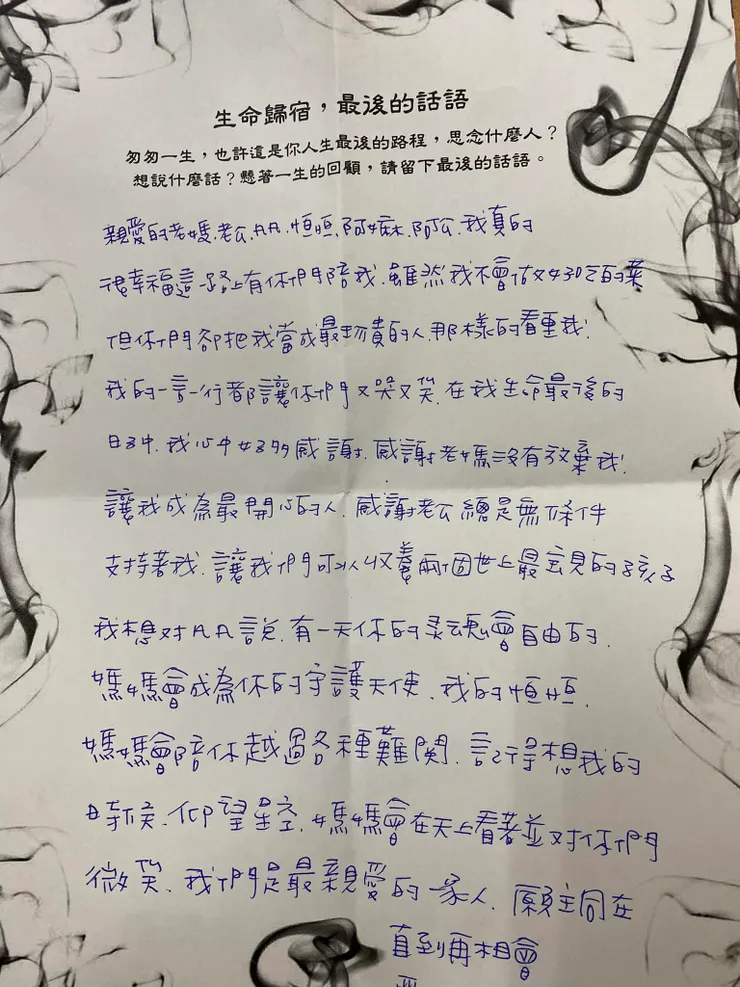 生命歸宿，最後的話語
匆匆一生，也許這是你人生最後的路程，思念什麼人？
想說什麼話？懸著一生的回顧，請留下最後的話語。
親愛的老媽.老公.AA.恒恒.阿嬤.阿公.我真的
很幸福這一路上有你們陪我.雖然我不會做好吃的菜
但你們卻把我當成最珍貴的人.那樣的看重我.
我的一言一行都讓你們又哭又笑.在我生命最後的
日子中.我心中好多感謝.感謝老媽沒有放棄我.
讓我成為最開心的人.感謝老公總是無條件
支持著我.讓我們可以收養兩個世上最的孩子
我想對AA說.有一天你的靈魂會自由的.
媽媽會成為你的守護天使.我的恒恒.
媽媽會陪你越過各種難關.記得想我的
時候.仰望星空.媽媽會在天上看著並對你們
微笑.我們是最親愛的家人.願主同在
直到再相會